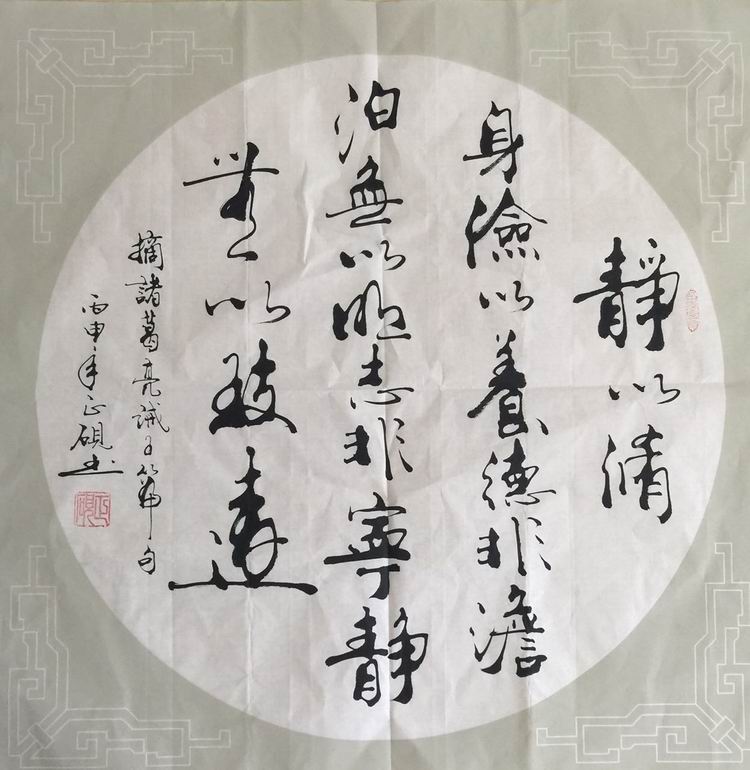 靜以脩
身儉以養德非澹
泊無以明志非寧靜
無以致遠
摘諸葛亮誡子篇句
丙申年正硯書